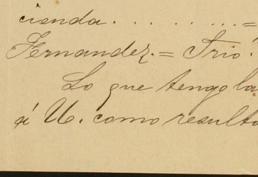 cienda. . . . . . . . . =
Fernandez. = Trió.
Lo que tengo la
á U. como resulta